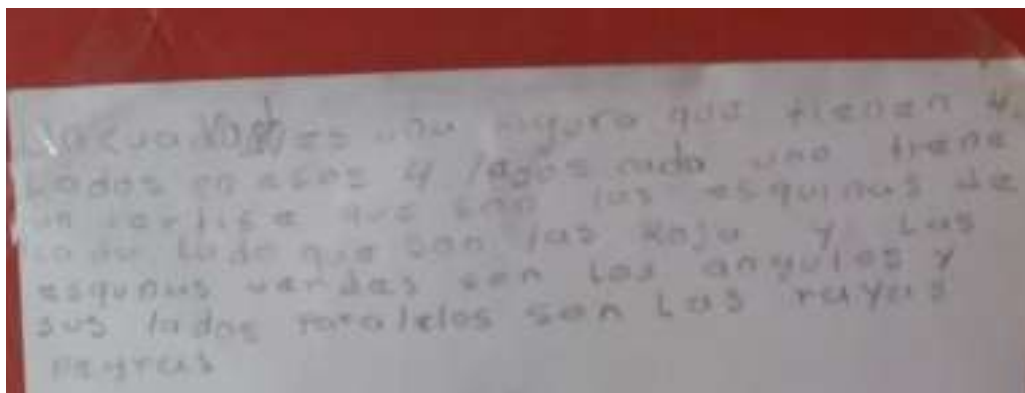 es una figura que tienen 4
Lados en esos 4 lados cada uno tiene
un vertise que son las esquinas de
cada Lado que son las Roja y Las
esqunas verdes son Los angulos y
sus lados Paralelos son Las rayas
negras